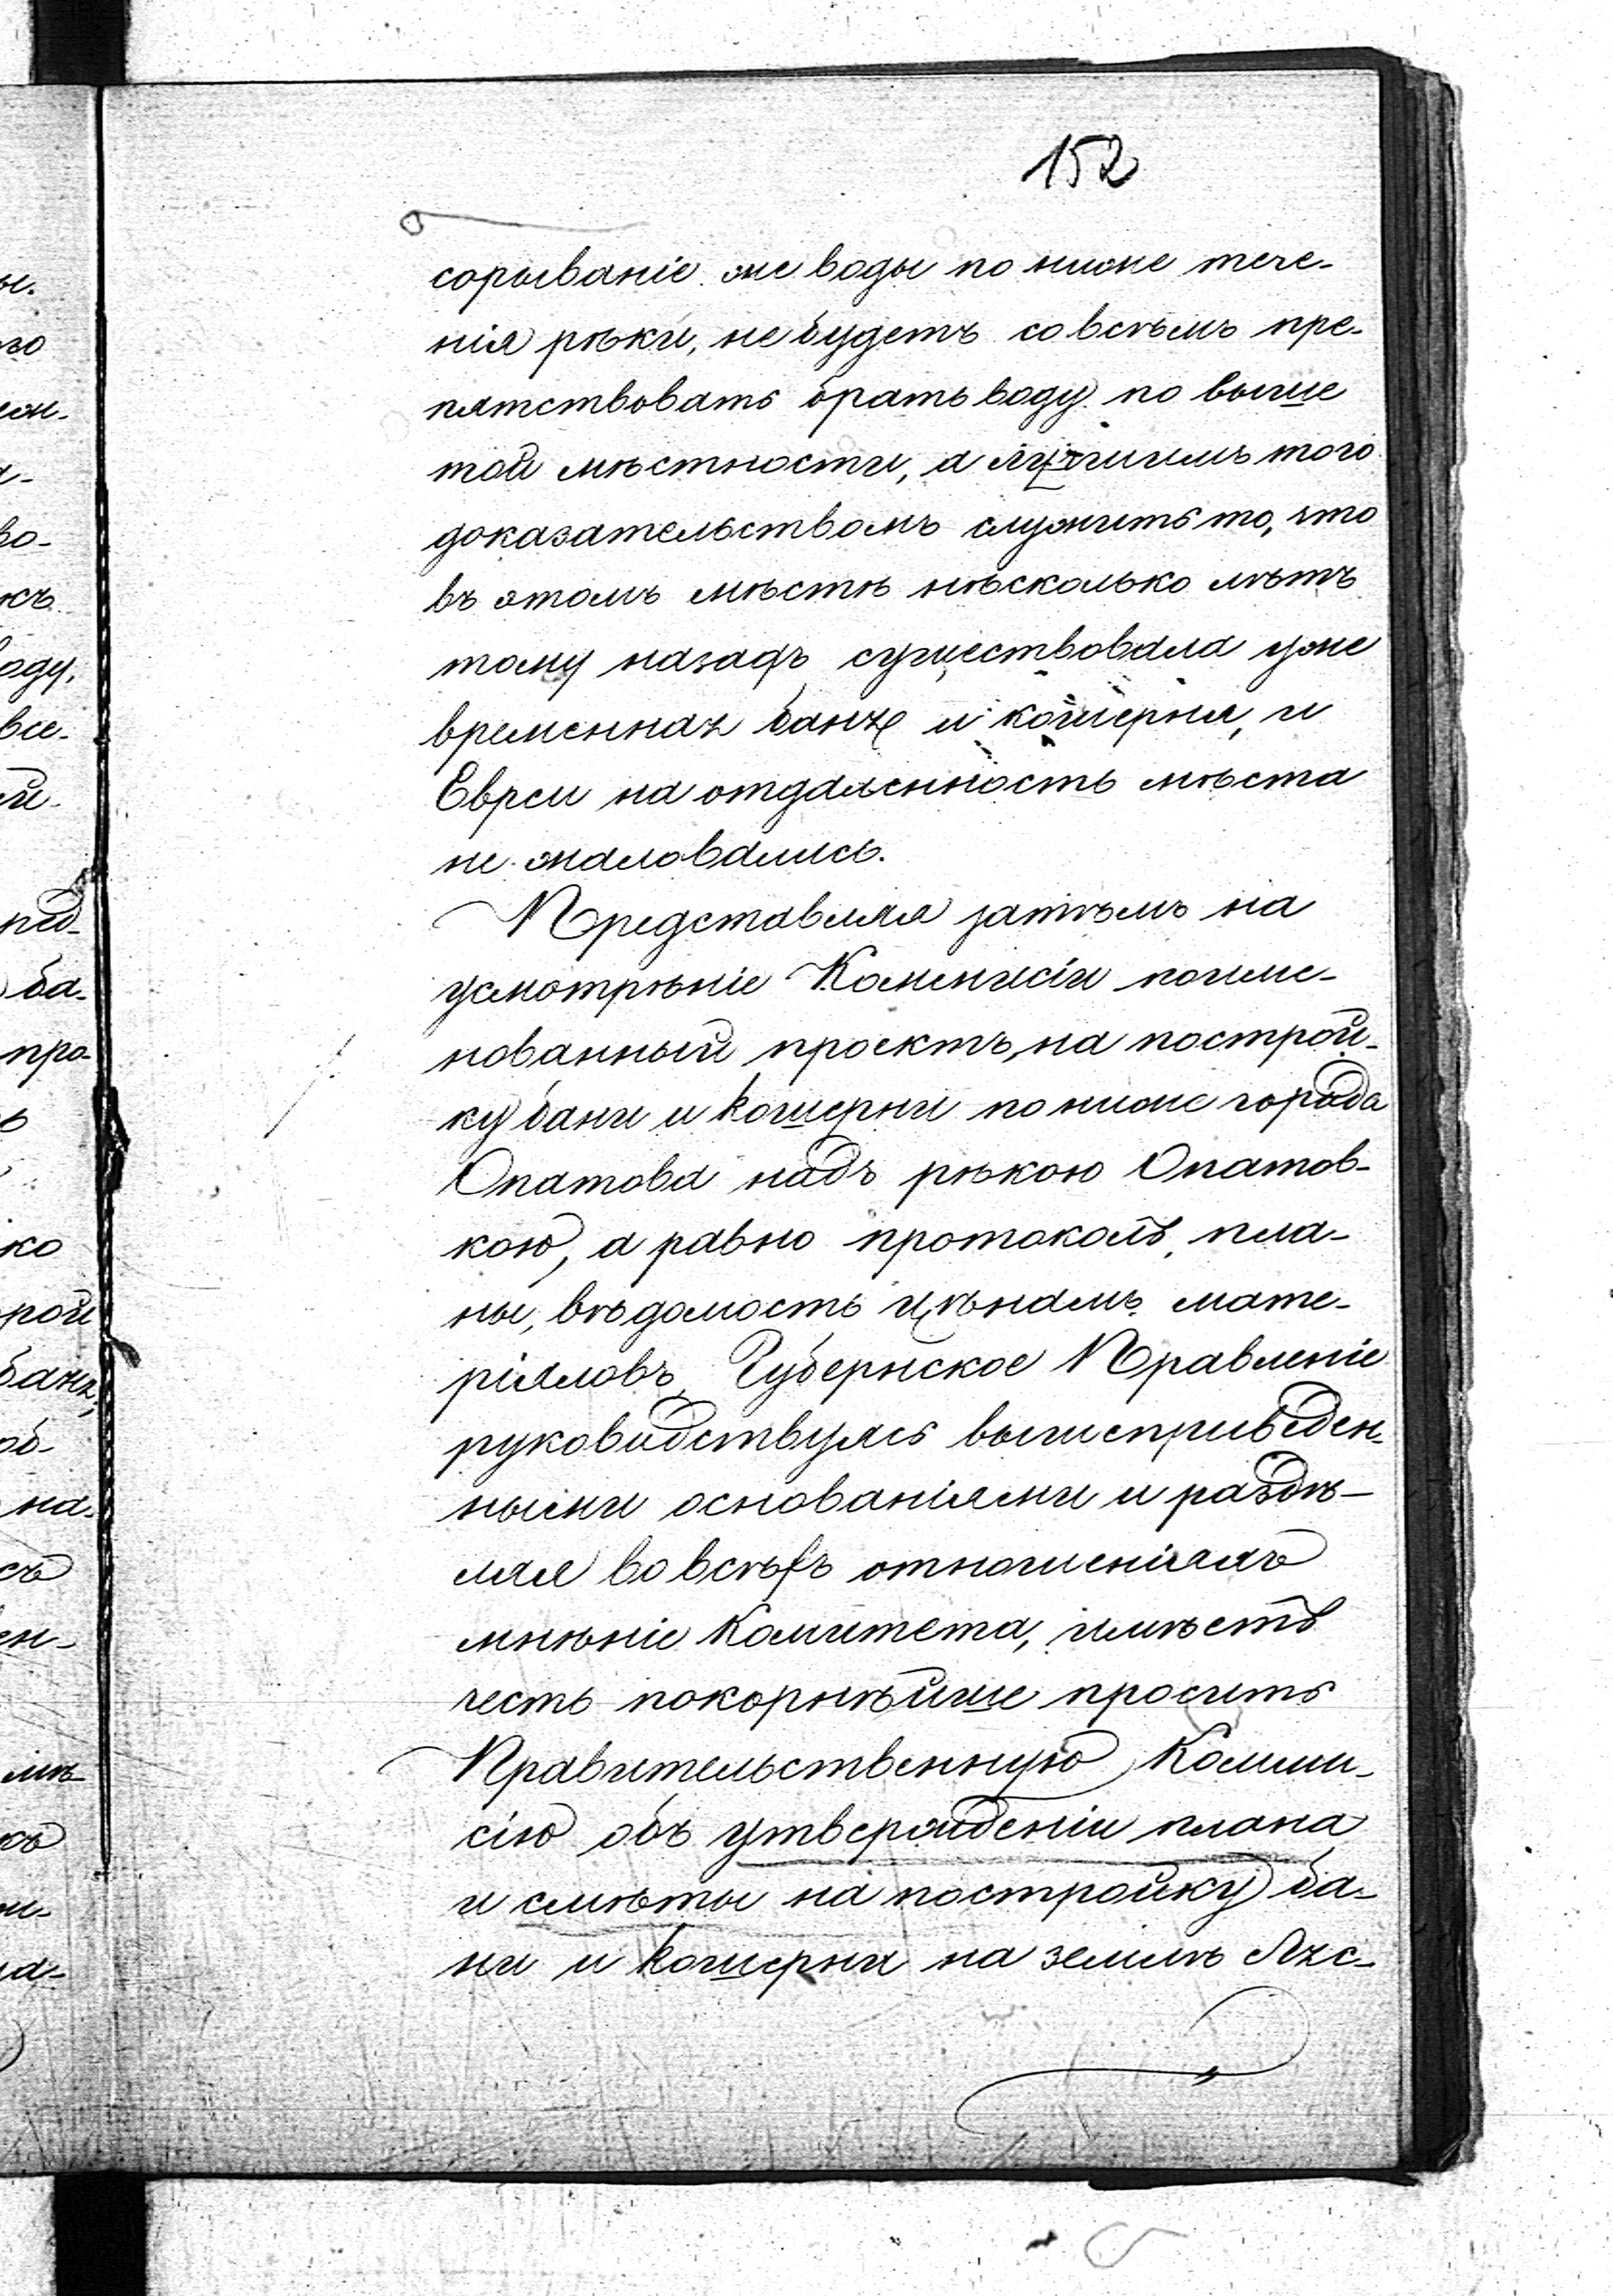 152
сорываніе же воды по ниже тече-
нія рѣки, не будетъ совсѣмъ пре-
пятствовать брать воду по выше
той мѣстности, а лучшимъ того
доказательствомъ служить то, что
въ этомъ мѣстѣ нѣсколько лѣтъ
тому назадъ существовала уже
временная баня и кошерня, и
Евреи на отдаленность мѣста
не жаловались.
Представляя затѣмъ на
усмотрѣніе Коммисіи поиме-
нованный проектъ, на построй-
ку бани и кошерни по ниже города
Опатова надъ рѣкою Опатов-
кою, а равно протоколъ, пла-
ны, вѣдомость цѣнамъ мате-
ріяловъ, Губернское Правленіе
руководствуясь вышеприведен-
ными основаніями и раздѣ-
ляя во всѣхъ отношеніяхъ
мнѣніе Комитета, имѣетъ
честь покорнѣйше просить
Правительственную Комми-
сію объ утвержденіи плана
и смѣты на постройку ба-
ни и кошерни на землѣ Яхс-
ы.
го
ем-
а-
во-
съ
оду,
все-
ей-
ред-
ба-
про-
ь
ко
рой
баня,
об-
на-
съ
ен-
мѣ-
въ
и-
да-